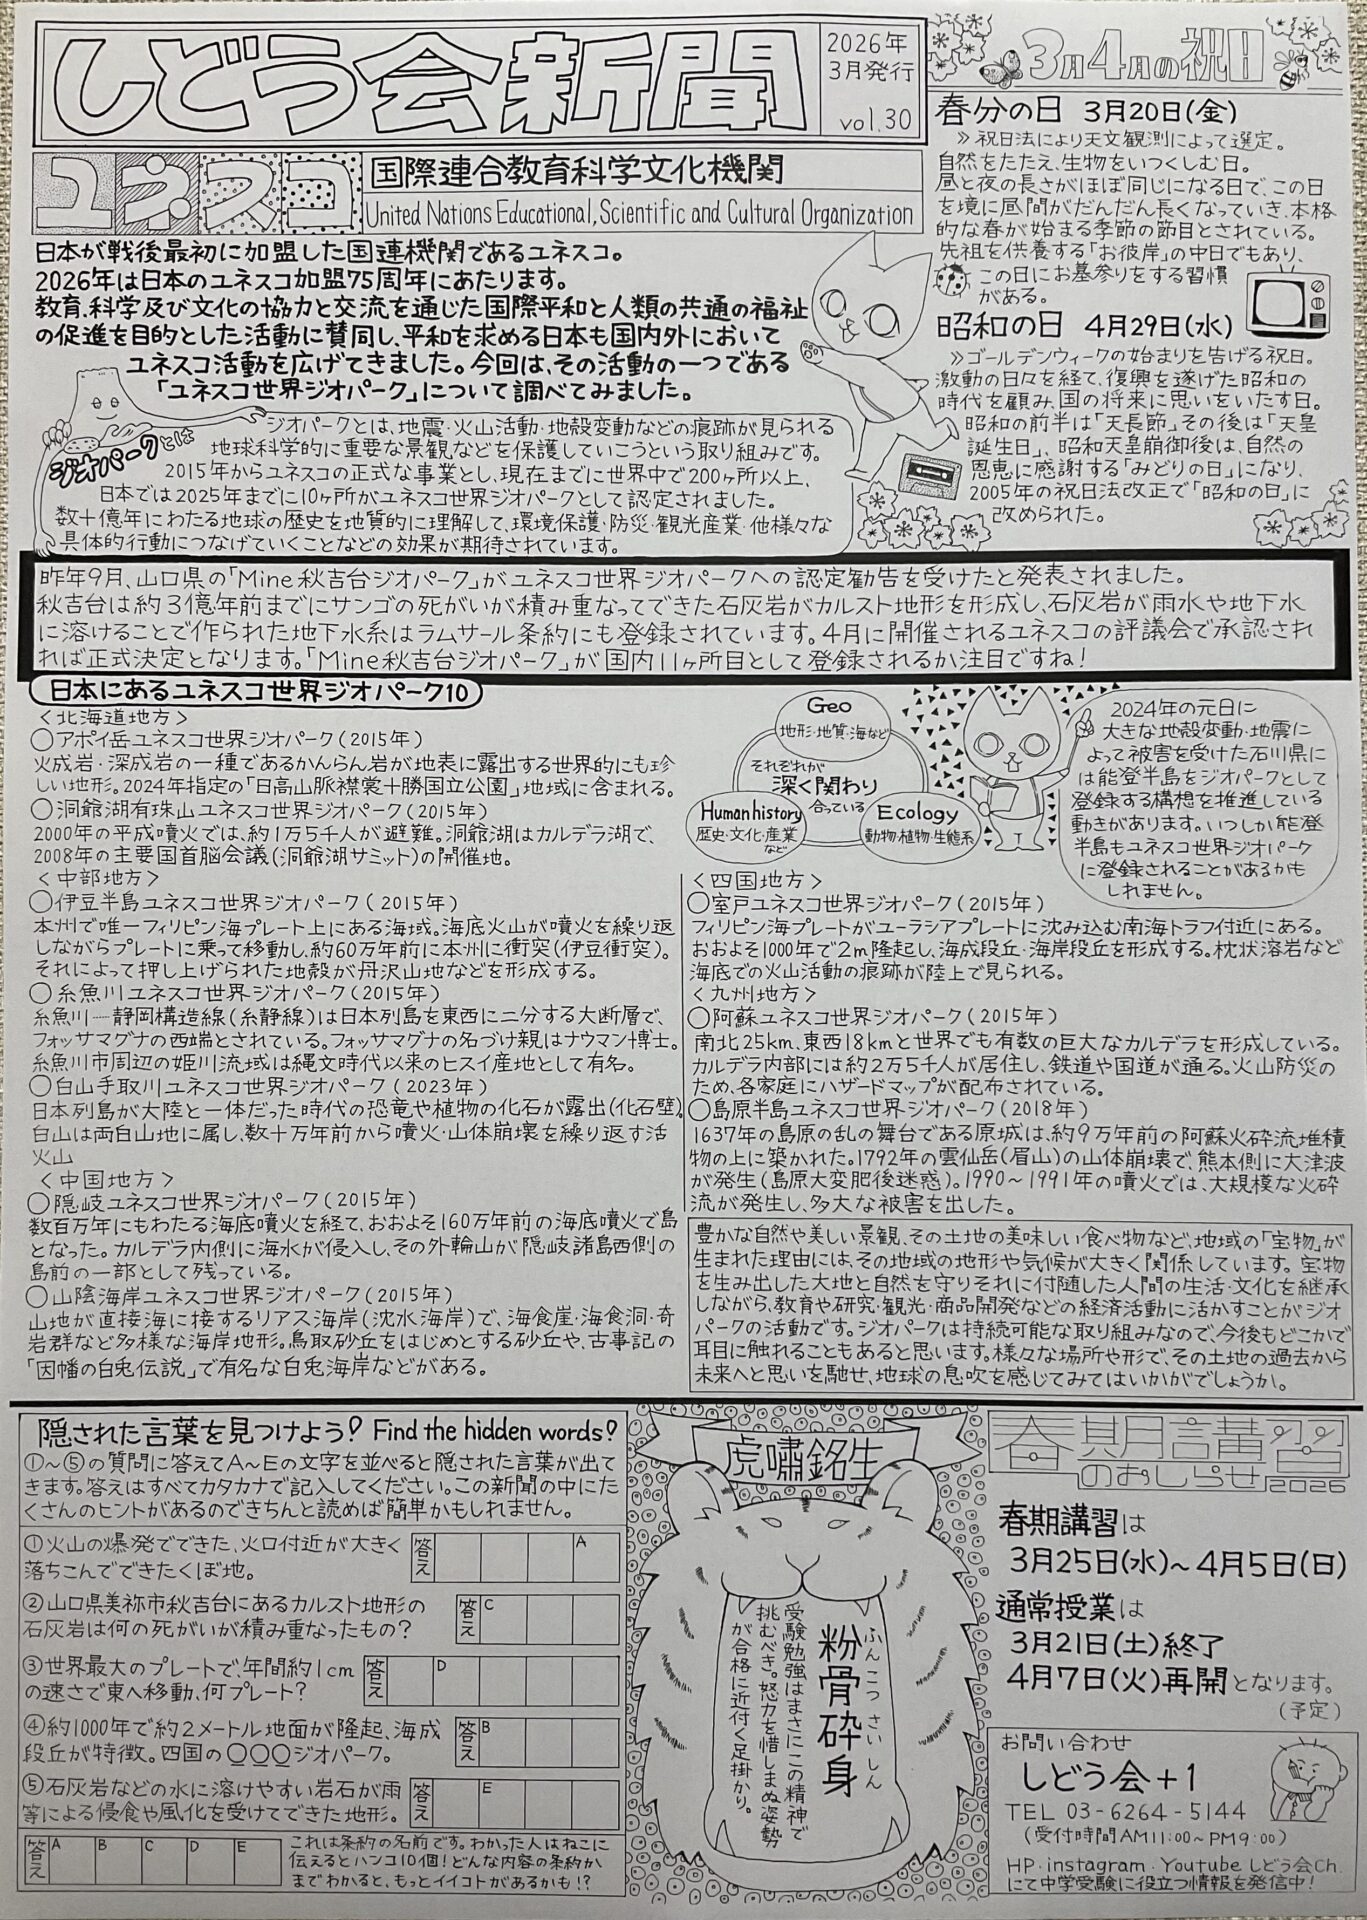 しどう会新聞
2026年
3月発行
vol.30
ユネスコ
国際連合教育科学文化機関
United Nations Educational, Scientific and Cultural Organization
日本が戦後最初に加盟した国連機関であるユネスコ。
2026年は日本のユネスコ加盟75周年にあたります。
教育、科学及び文化の協力と交流を通じた国際平和と人類の共通の福祉
の促進を目的とした活動に賛同し、平和を求める日本も国内外において
ユネスコ活動を広げてきました。今回は、その活動の一つである
「ユネスコ世界ジオパーク」について調べてみました。
ジオパークとは
ジオパークとは、地震・火山活動・地殻変動などの痕跡が見られる
地球科学的に重要な景観などを保護していこうという取り組みです。
2015年からユネスコの正式な事業とし、現在までに世界中で200ヶ所以上、
日本では2025年までに10ヶ所がユネスコ世界ジオパークとして認定されました。
数十億年にわたる地球の歴史を地質的に理解して、環境保護・防災・観光産業・他様々な
具体的行動につなげていくことなどの効果が期待されています。
3月4月の祝日
春分の日 3月20日(金)
≫祝日法により天文観測によって選定。
自然をたたえ、生物をいつくしむ日。
昼と夜の長さがほぼ同じになる日で、この日
を境に昼間がだんだん長くなっていき、本格
的な春が始まる季節の節目とされている。
先祖を供養する「お彼岸」の中日でもあり、
この日にお墓参りをする習慣
がある。
昭和の日 4月29日(水)
≫ゴールデンウィークの始まりを告げる祝日。
激動の日々を経て、復興を遂げた昭和の
時代を顧み、国の将来に思いをいたす日。
昭和の前半は「天長節」、その後は「天皇
誕生日」、昭和天皇崩御後は、自然の
恩恵に感謝する「みどりの日」になり、
2005年の祝日法改正で「昭和の日」に
改められた。
昨年9月、山口県の「Mine秋吉台ジオパーク」がユネスコ世界ジオパークへの認定勧告を受けたと発表されました。
秋吉台は約3億年前までにサンゴの死がいが積み重なってできた石灰岩がカルスト地形を形成し、石灰岩が雨水や地下水
に溶けることで作られた地下水系はラムサール条約にも登録されています。4月に開催されるユネスコの評議会で承認され
れば正式決定となります。「Mine秋吉台ジオパーク」が国内11ヶ所目として登録されるか注目ですね!
日本にあるユネスコ世界ジオパーク10
<北海道地方>
○アポイ岳ユネスコ世界ジオパーク(2015年)
火成岩・深成岩の一種であるかんらん岩が地表に露出する世界的にも珍
しい地形。2024年指定の「日高山脈襟裳十勝国立公園」地域に含まれる。
○洞爺湖有珠山ユネスコ世界ジオパーク(2015年)
2000年の平成噴火では、約1万5千人が避難。洞爺湖はカルデラ湖で、
2008年の主要国首脳会議(洞爺湖サミット)の開催地。
<中部地方>
○伊豆半島ユネスコ世界ジオパーク(2015年)
本州で唯一フィリピン海プレート上にある海域。海底火山が噴火を繰り返
しながらプレートに乗って移動し、約60万年前に本州に衝突(伊豆衝突)。
それによって押し上げられた地殻が丹沢山地などを形成する。
○糸魚川ユネスコ世界ジオパーク(2015年)
糸魚川―静岡構造線(糸静線)は日本列島を東西に二分する大断層で、
フォッサマグナの西端とされている。フォッサマグナの名づけ親はナウマン博士。
糸魚川市周辺の姫川流域は縄文時代以来のヒスイ産地として有名。
○白山手取川ユネスコ世界ジオパーク(2023年)
日本列島が大陸と一体だった時代の恐竜や植物の化石が露出(化石壁)。
白山は両白山地に属し、数十万年前から噴火・山体崩壊を繰り返す活
火山
<中国地方>
○隠岐ユネスコ世界ジオパーク(2015年)
数百万年にもわたる海底噴火を経て、おおよそ160万年前の海底噴火で島
となった。カルデラ内側に海水が侵入し、その外輪山が隠岐諸島西側の
島前の一部として残っている。
○山陰海岸ユネスコ世界ジオパーク(2015年)
山地が直接海に接するリアス海岸(沈水海岸)で、海食崖・海食洞・奇
岩群など多様な海岸地形。鳥取砂丘をはじめとする砂丘や、古事記の
「因幡の白兎伝説」で有名な白兎海岸などがある。
Geo
地形・地質・海など
それぞれが
深く関わり
合っている
Human history
歴史・文化・産業
など
Ecology
動物・植物・生態系
2024年の元日に
大きな地殻変動・地震に
よって被害を受けた石川県に
は能登半島をジオパークとして
登録する構想を推進している
動きがあります。いつしか能登
半島もユネスコ世界ジオパーク
に登録されることがあるかも
しれません。
T
<四国地方>
○室戸ユネスコ世界ジオパーク(2015年)
フィリピン海プレートがユーラシアプレートに沈み込む南海トラフ付近にある。
おおよそ1000年で2m隆起し、海成段丘・海岸段丘を形成する。枕状溶岩など
海底での火山活動の痕跡が陸上で見られる。
<九州地方>
○阿蘇ユネスコ世界ジオパーク(2015年)
南北25km、東西18kmと世界でも有数の巨大なカルデラを形成している。
カルデラ内部には約2万5千人が居住し、鉄道や国道が通る。火山防災の
ため、各家庭にハザードマップが配布されている。
○島原半島ユネスコ世界ジオパーク(2018年)
1637年の島原の乱の舞台である原城は、約9万年前の阿蘇火砕流堆積
物の上に築かれた。1792年の雲仙岳(眉山)の山体崩壊で、熊本側に大津波
が発生(島原大変肥後迷惑)。1990~1991年の噴火では、大規模な火砕
流が発生し、多大な被害を出した。
豊かな自然や美しい景観、その土地の美味しい食べ物など、地域の「宝物」が
生まれた理由には、その地域の地形や気候が大きく関係しています。宝物
を生み出した大地と自然を守りそれに付随した人間の生活・文化を継承
しながら、教育や研究・観光・商品開発などの経済活動に活かすことがジオ
パークの活動です。ジオパークは持続可能な取り組みなので、今後もどこかで
耳目に触れることもあると思います。様々な場所や形で、その土地の過去から
未来へと思いを馳せ、地球の息吹を感じてみてはいかがでしょうか。
隠された言葉を見つけよう? Find the hidden words?
①~⑤の質問に答えてA~Eの文字を並べると隠された言葉が出て
きます。答えはすべてカタカナで記入してください。この新聞の中にた
くさんのヒントがあるのできちんと読めば簡単かもしれません。
①火山の爆発でできた、火口付近が大きく
落ちこんでできたくぼ地。
答え A
②山口県美祢市秋吉台にあるカルスト地形の
石灰岩は何の死がいが積み重なったもの?
答え C
③世界最大のプレートで、年間約1cm
の速さで東へ移動、何プレート?
答え D
④約1000年で約2メートル地面が隆起、海成
段丘が特徴。四国の○○○ジオパーク。
答え B
⑤石灰岩などの水に溶けやすい岩石が雨
等による侵食や風化を受けてできた地形。
答え E
答え A B C D E
これは条約の名前です。わかった人はねこに
伝えるとハンコ10個!どんな内容の条約か
までわかると、もっとイイコトがあるかも!?
虎嘯銘生
粉骨砕身
ふんこつさいしん
受験勉強はまさにこの精神で
挑むべき。努力を惜しまぬ姿勢
が合格に近付く足掛かり。
春期講習
のおしらせ2026
春期講習は
3月25日(水)~4月5日(日)
通常授業は
3月21日(土)終了
4月7日(火)再開となります。
(予定)
お問い合わせ
しどう会+1
TEL 03-6264-5144
(受付時間AM11:00~PM9:00)
HP・instagram・Youtube しどう会Ch.
にて中学受験に役立つ情報を発信中!